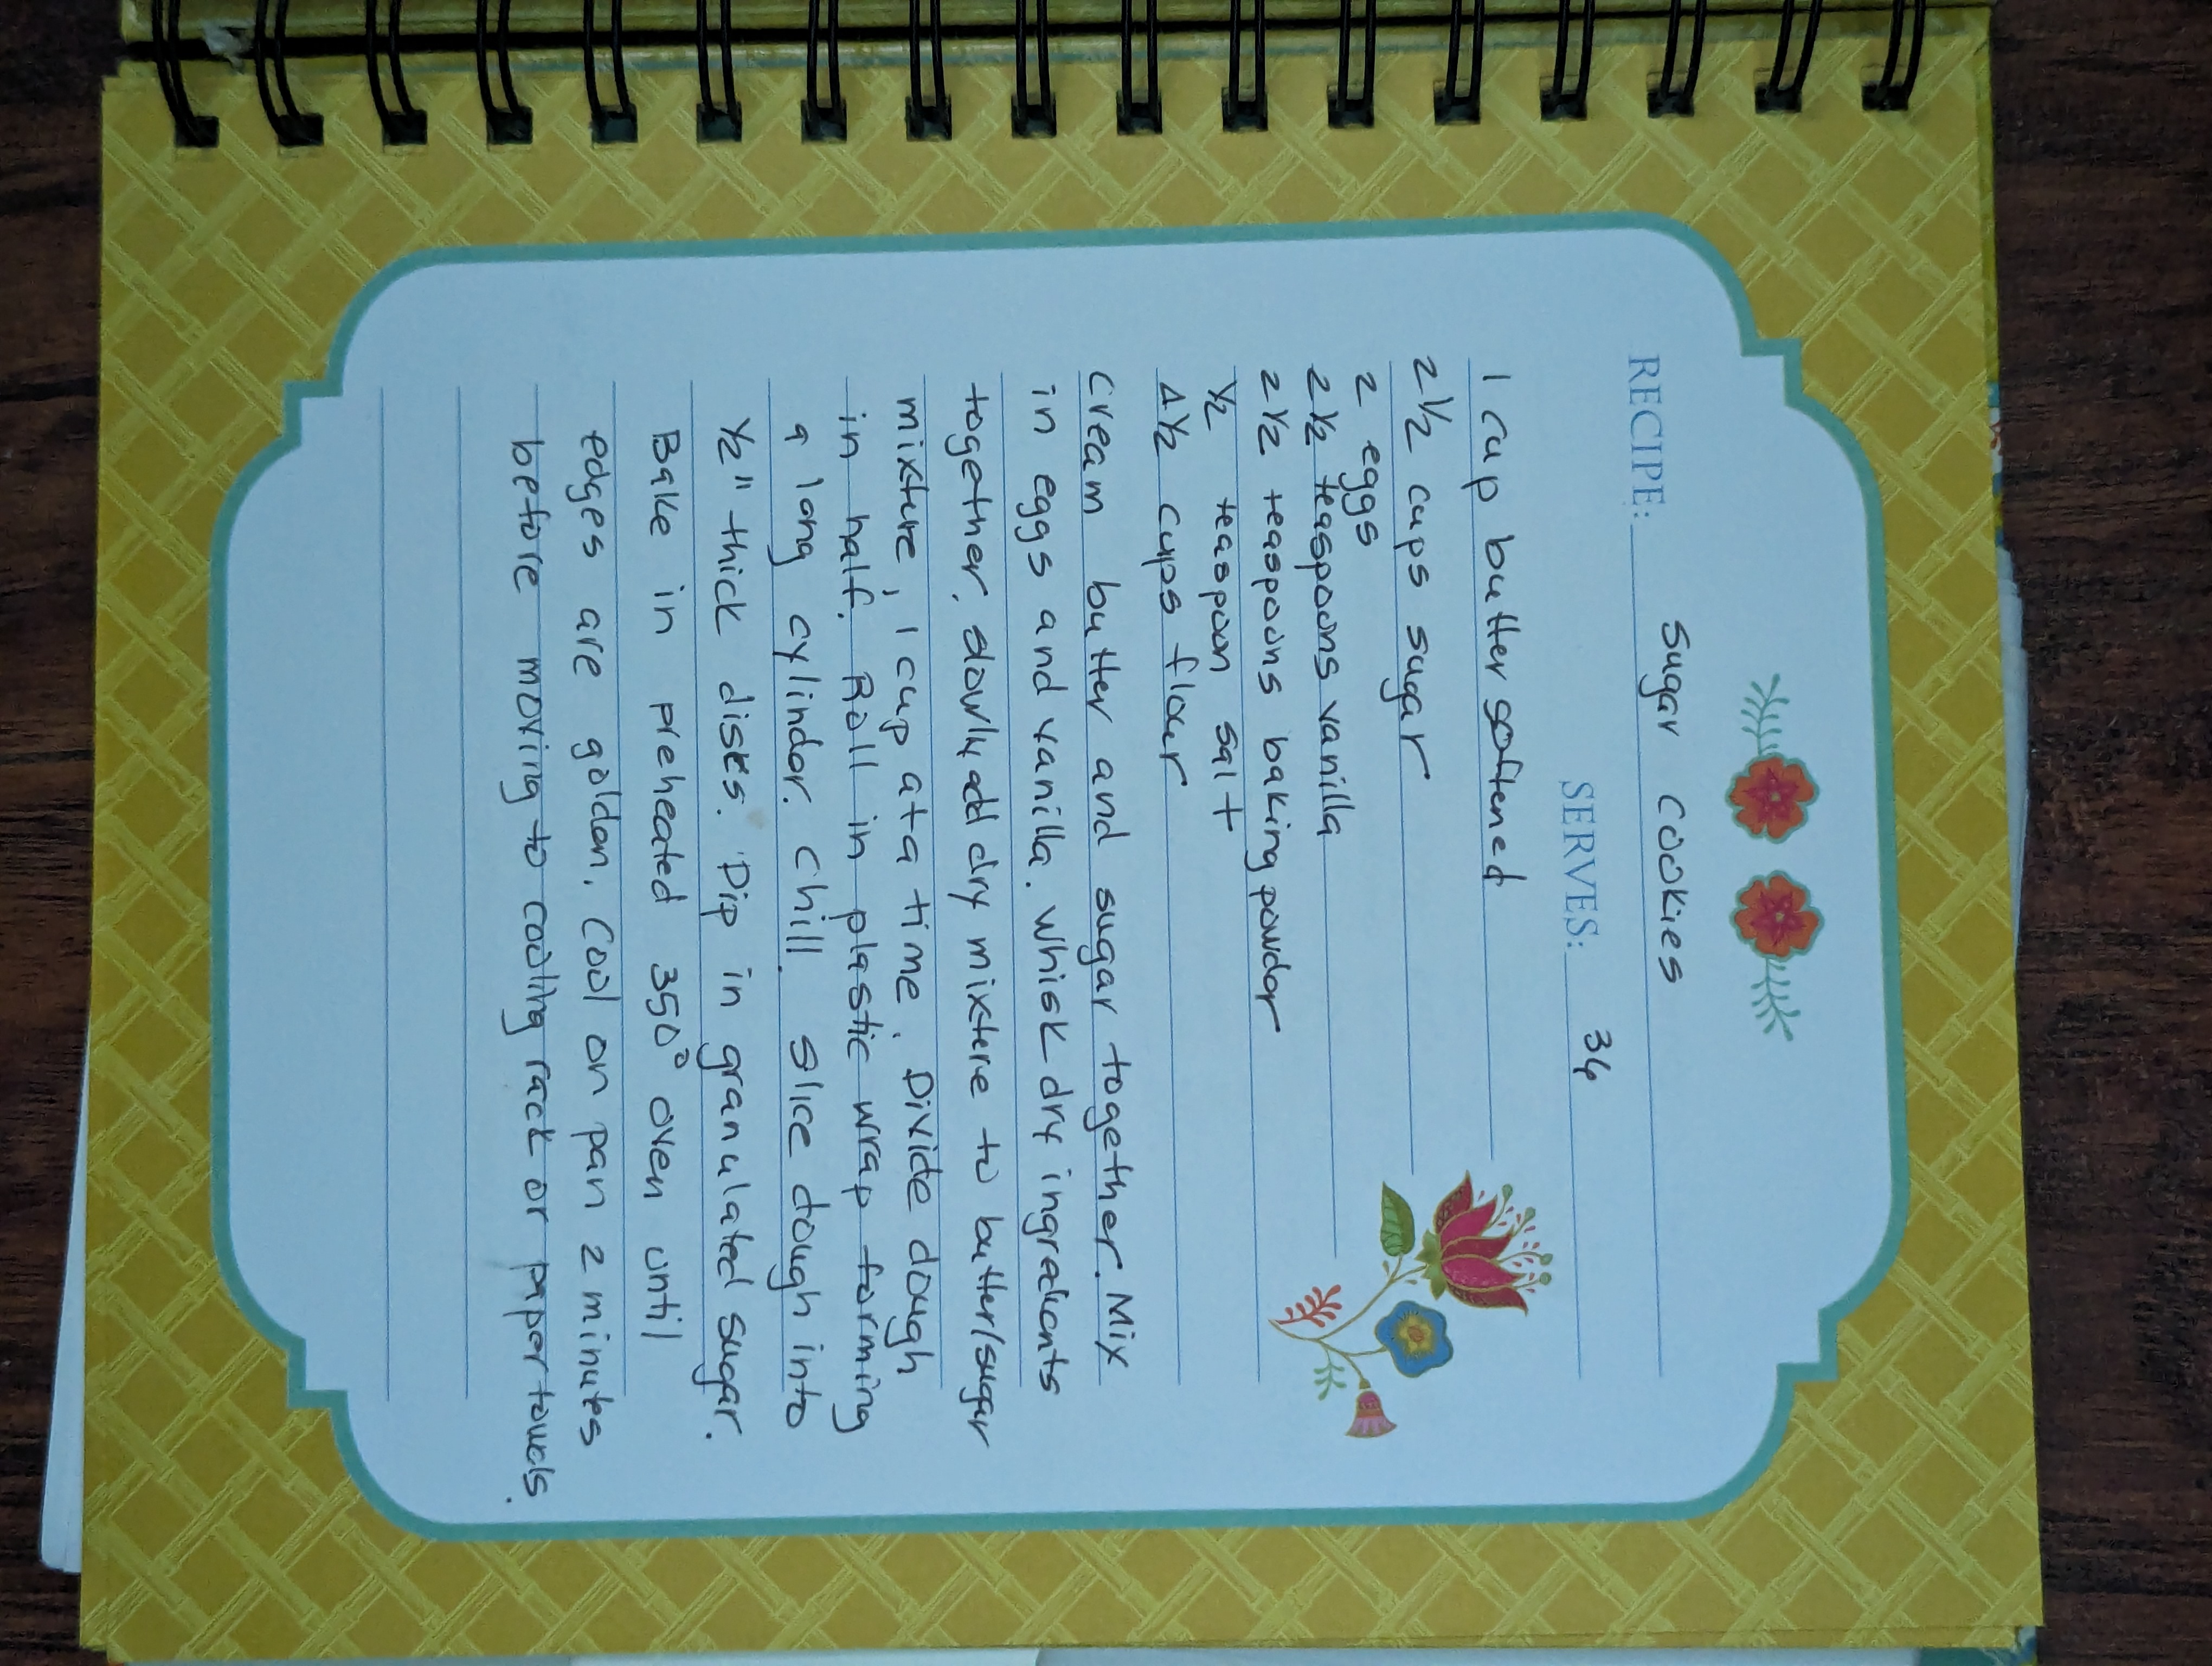 RECIPE: Sugar Cookies
SERVES: 36
1 cup butter softened
2 1/2 cups sugar
2 eggs
2 1/2 teaspoons vanilla
2 1/2 teaspoons baking powder
1/2 teaspoon salt
4 1/2 cups flour
Cream butter and sugar together. Mix
in eggs and vanilla. Whisk dry ingredients
together. Slowly add dry mixture to butter/sugar
mixture, 1 cup at a time. Divide dough
in half. Roll in plastic wrap forming
a long cylindor. Chill. Slice dough into
1/2" thick disks. Dip in granulated sugar.
Bake in preheated 350° oven until
edges are golden. Cool on pan 2 minutes
before moving to cooling rack or paper towels.